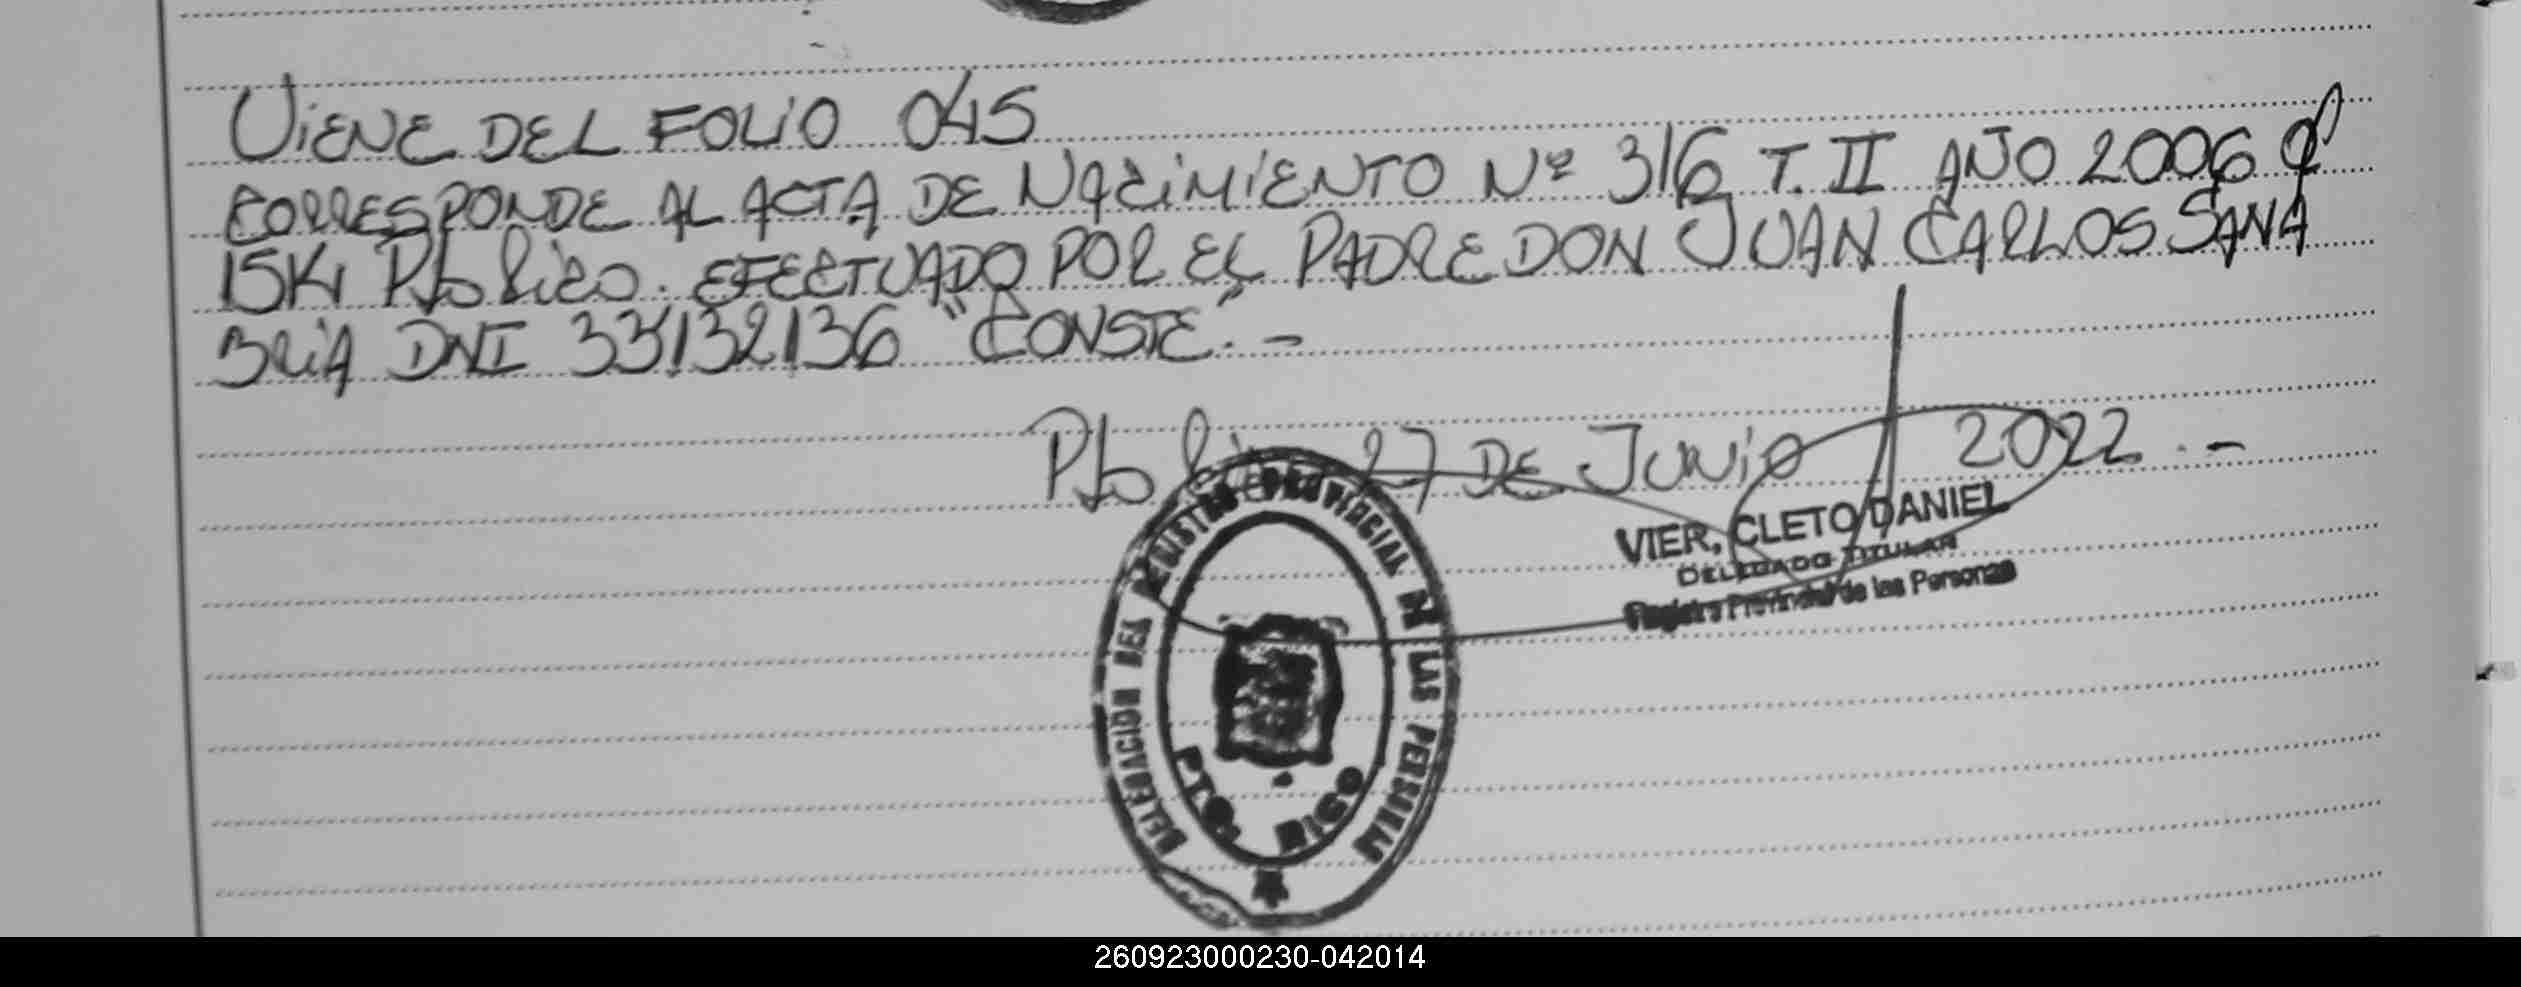 VIENE DEL FOLIO 045
CORRESPONDE AL ACTA DE NACIMIENTO Nº 316 T. II AÑO 2006 Of
15K1 Pto Rico. EFECTUADO POR EL PADRE DON JUAN CARLOS SANA
BRIA DNI 33132136 "CONSTE".-
Pto Rico 27 DE JUNIO 2022.-
VIER, CLETO DANIEL
DELEGADO TITULAR
Registro Provincial de las Personas
DELEGACION DEL REGISTRO PROVINCIAL DE LAS PERSONAS
PTO. RICO
260923000230-042014